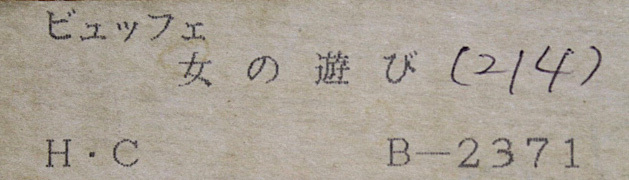 ビュッフェ
女の遊び(214)
H・C B―2371